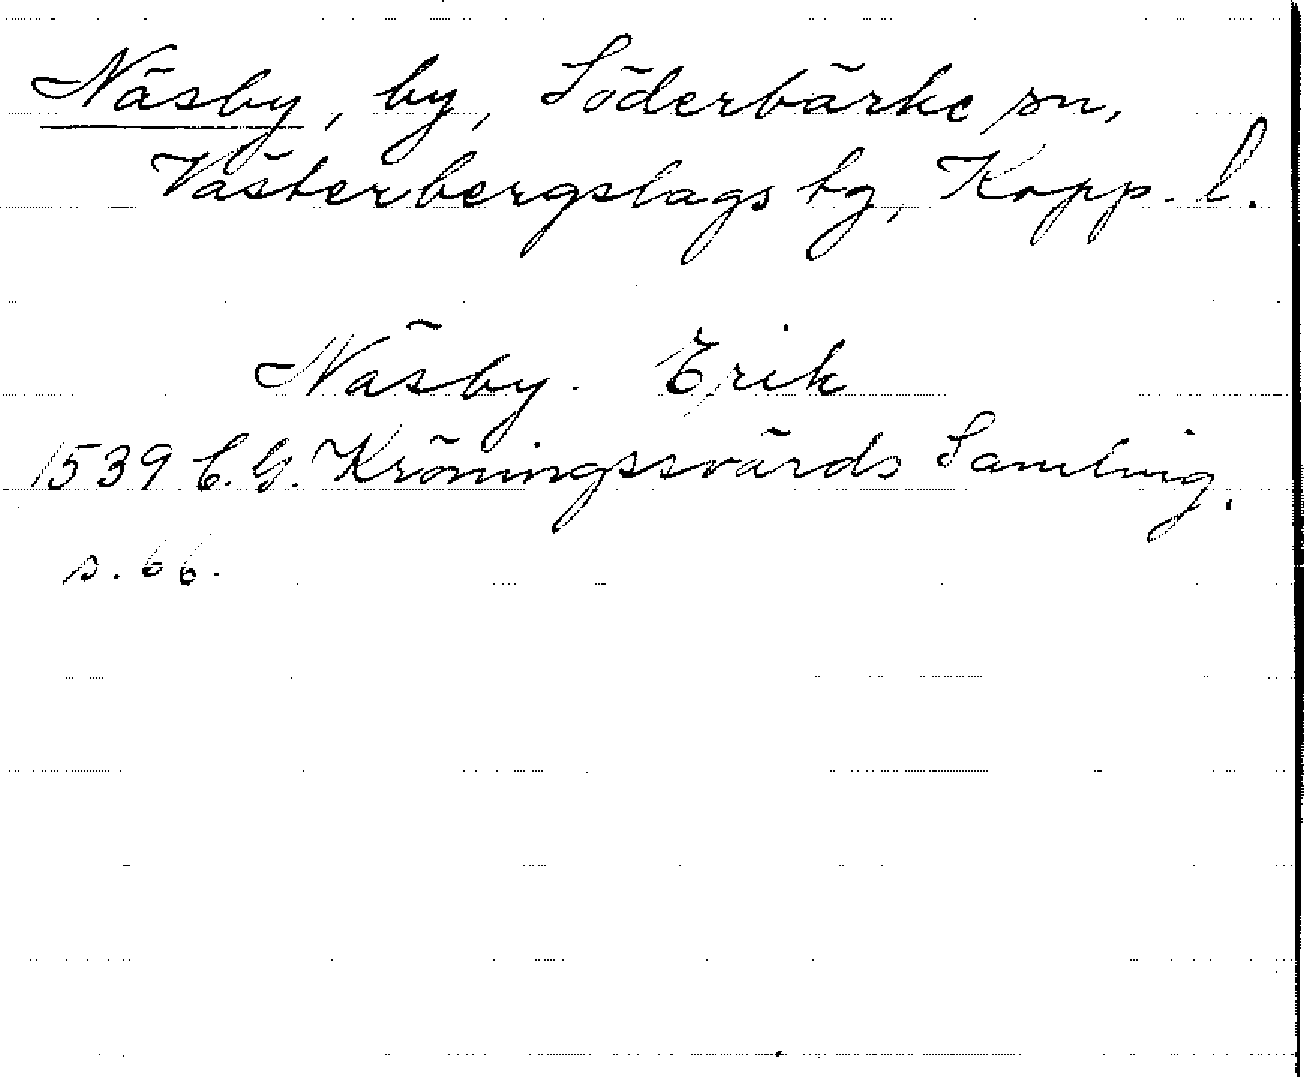 Näsby, by, Söderbärke sn,
Västerbergslags tg, Kopp. l.
Näsby. Erik
1539 C.G. Kröningssvärds Samling.
s. 66.